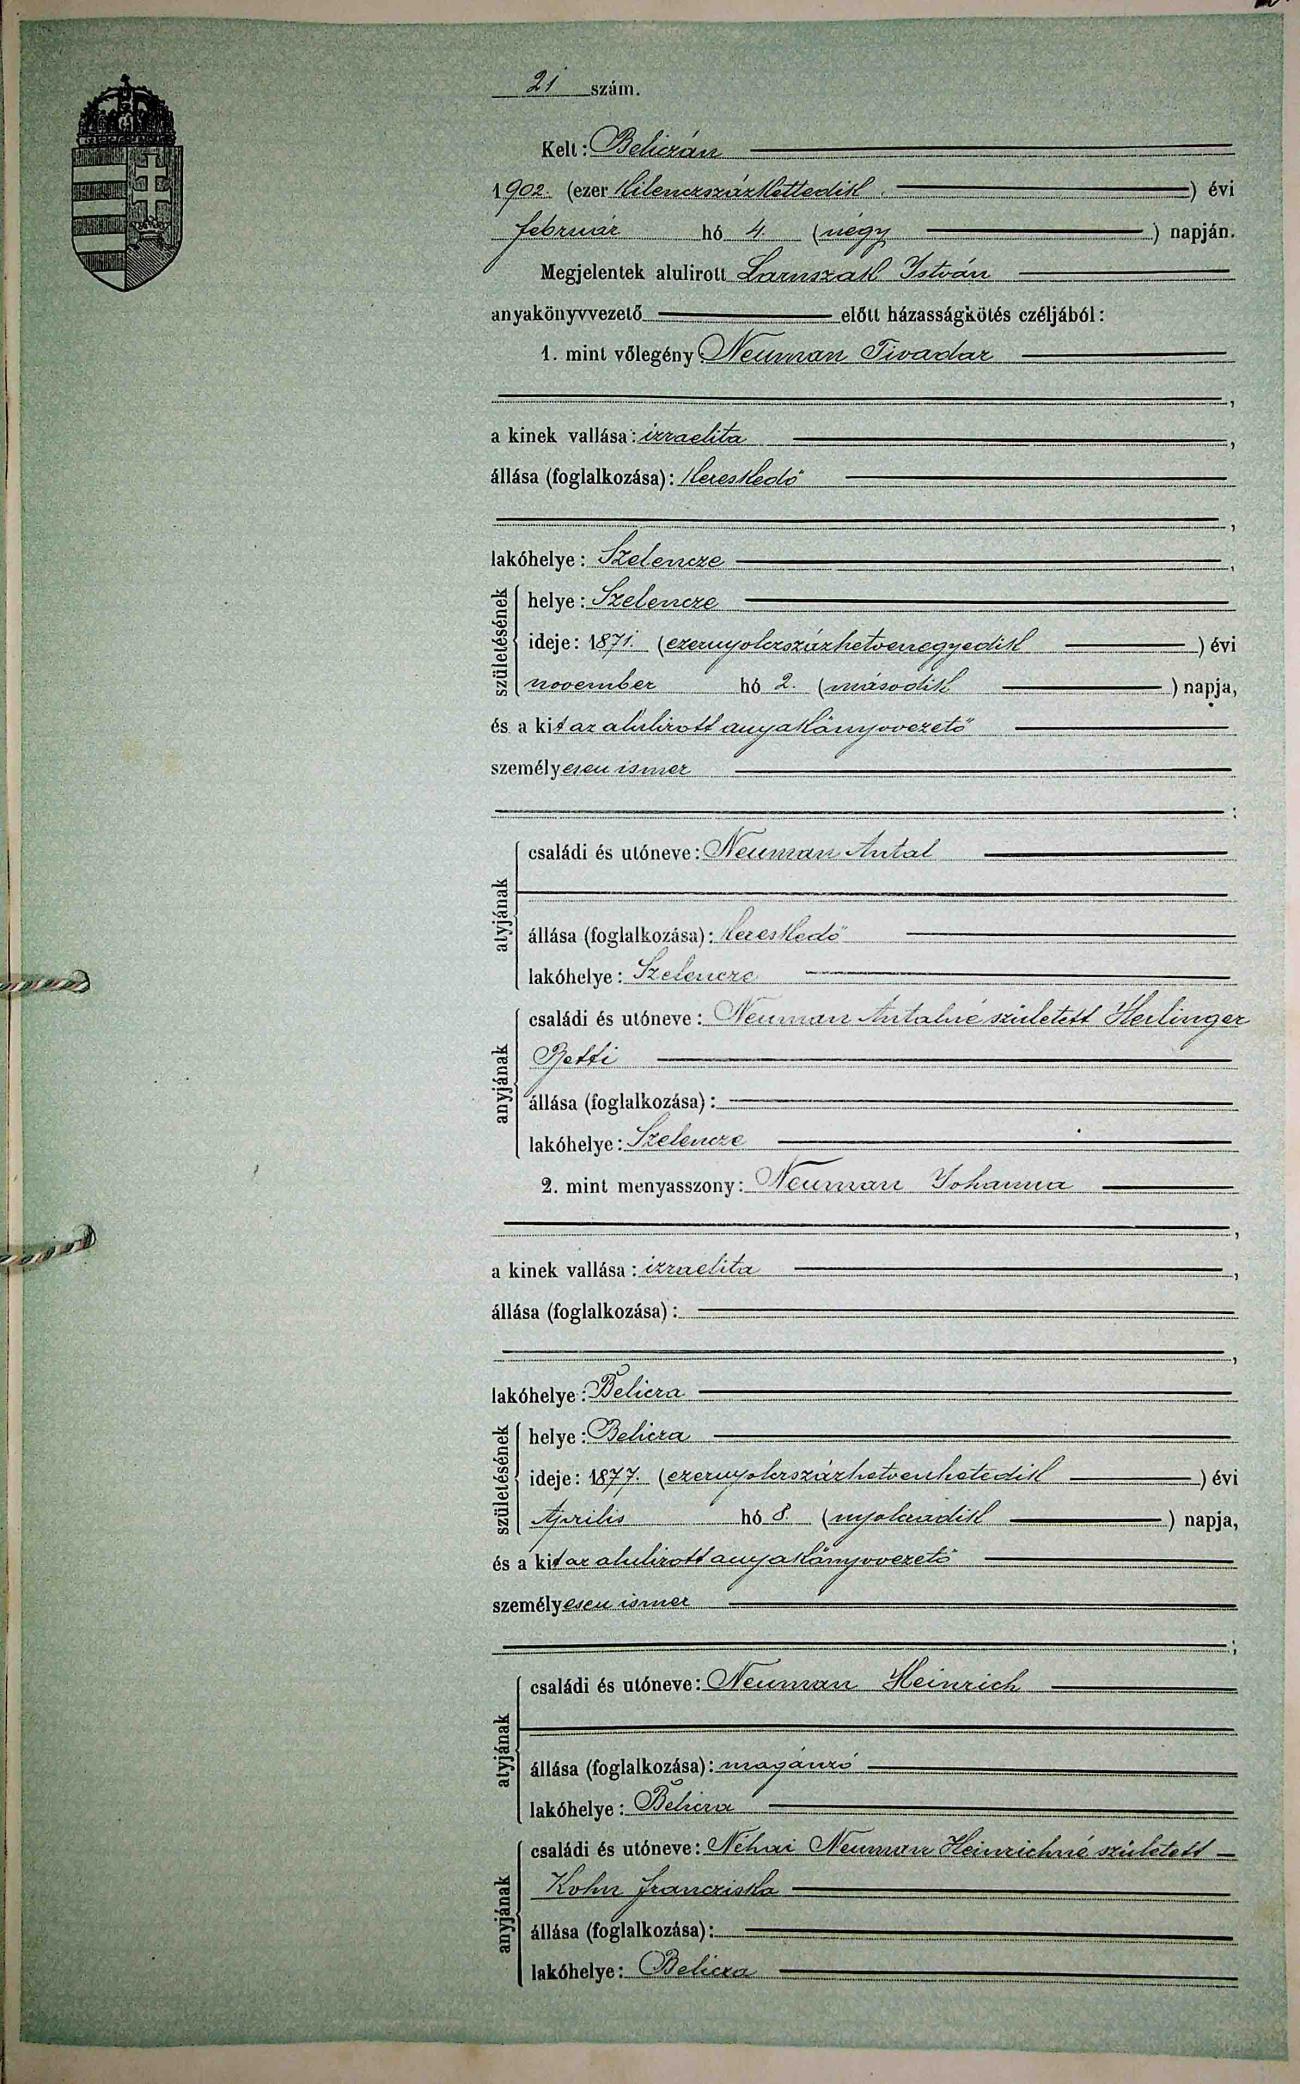 21 szám.
Kelt: Beliczán
1902. (ezer kilenczszázkettedik) évi
február hó 4. (négy) napján.
Megjelentek alulirott István
anyakönyvvezető előtt házasságkötés czéljából:
1. mint vőlegény Neuman Tivadar
,
a kinek vallása: izraelita,
állása (foglalkozása): kereskedő
,
lakóhelye: Szelencze,
születésének
helye: Szelencze
ideje: 1871. (ezernyolczszázhetvenegyedik) évi
november hó 2. (második) napja,
és a kit az alulirott anyakönyvvezető
személyesen ismer
;
atyjának
családi és utóneve: Neuman Antal
állása (foglalkozása): kereskedő
lakóhelye: Szelencze
anyjának
családi és utóneve: Neuman Antalné született Herlinger
Betti
állása (foglalkozása):
lakóhelye: Szelencze
2. mint menyasszony: Neuman Johanna
,
a kinek vallása: izraelita,
állása (foglalkozása):
,
lakóhelye: Belicza
születésének
helye: Belicza
ideje: 1877. (ezernyolczszázhetvenhetedik) évi
Április hó 8. (nyolczadik) napja,
és a kit az alulirott anyakönyvvezető
személyesen ismer
;
atyjának
családi és utóneve: Neuman Heinrich
állása (foglalkozása): magánzó
lakóhelye: Belicza
anyjának
családi és utóneve: Néhai Neuman Heinrichné született
Kohn Francziska
állása (foglalkozása):
lakóhelye: Belicza